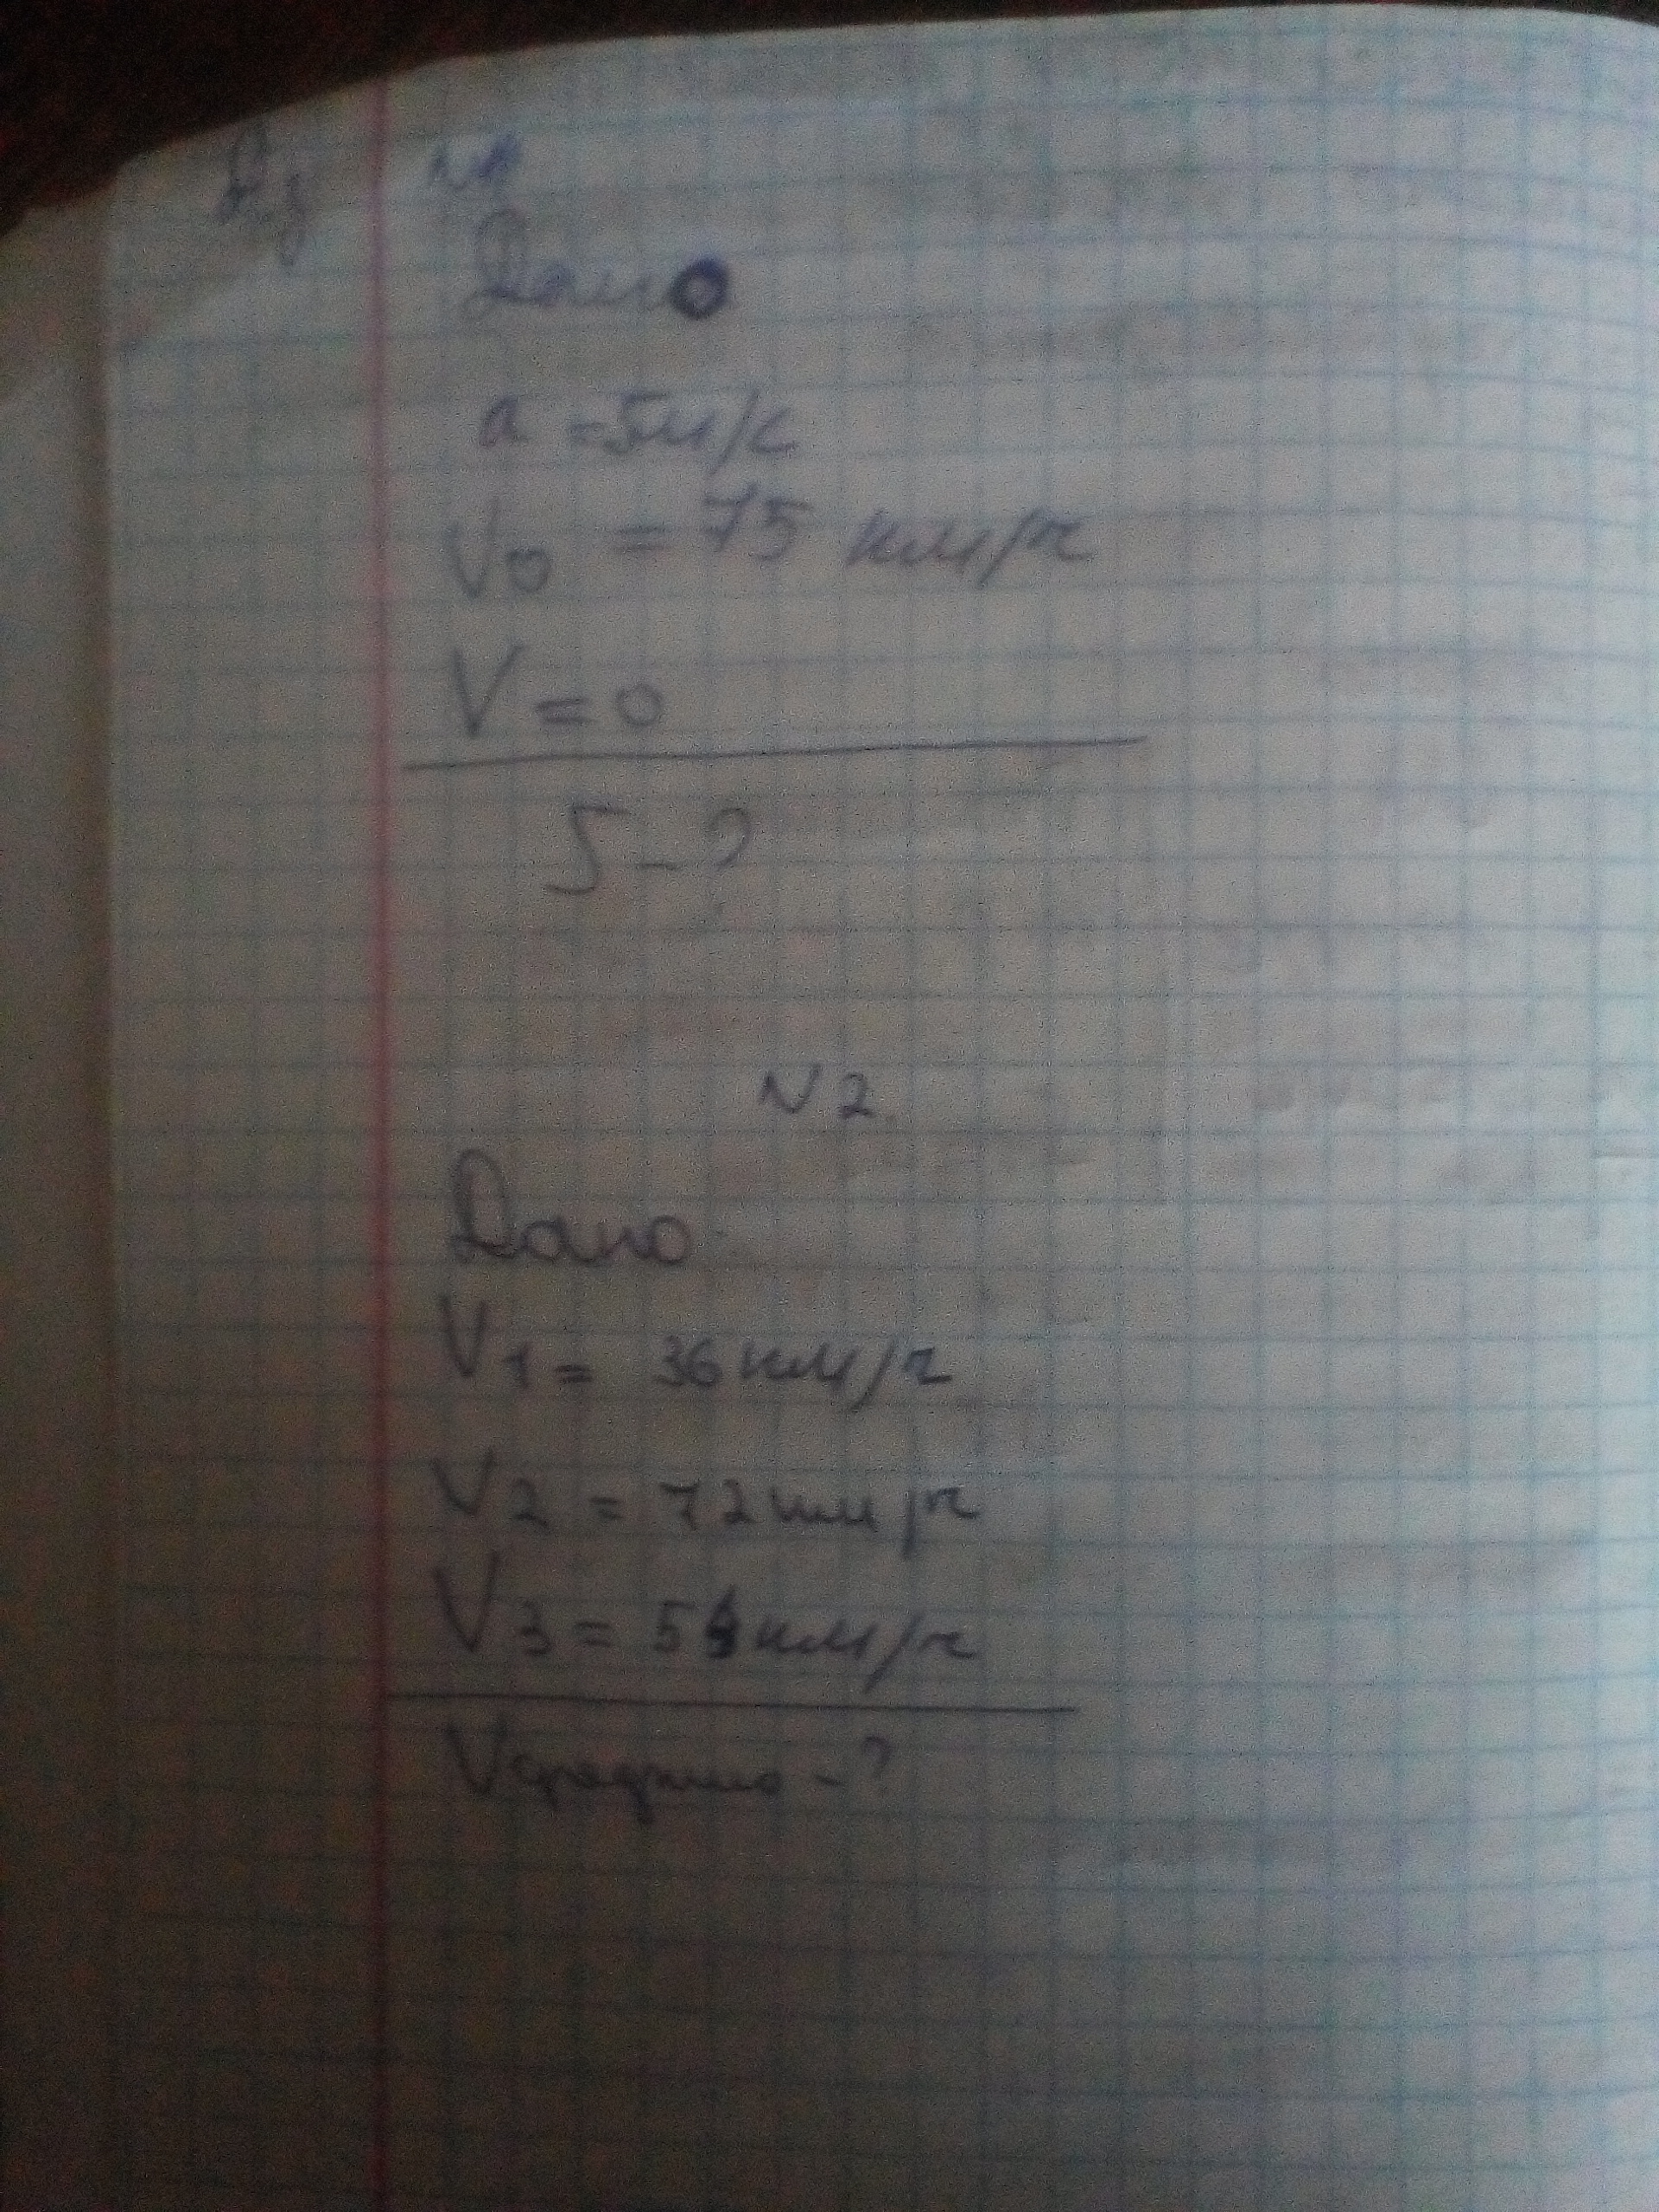 Дз №1
Дано
a = 5м/с
V0 = 75 км/ч
V = 0
S - ?
N 2.
Дано
V1 = 36 км/ч
V2 = 72 км/ч
V3 = 54 км/ч
Vсреднию - ?